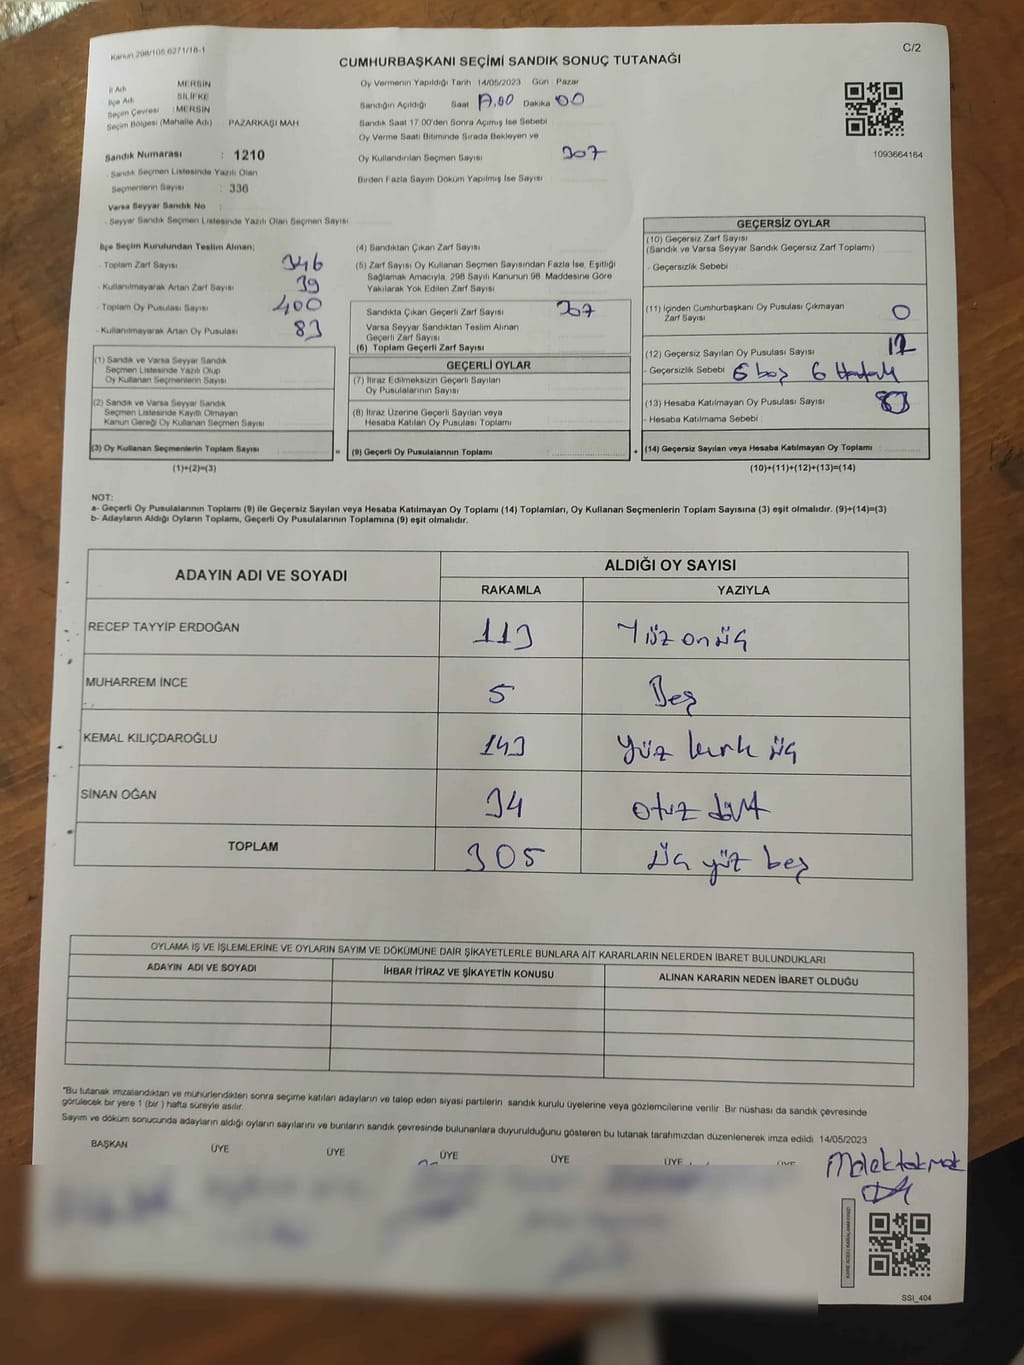 Kanun 298/105 6271/18-1
C/2
CUMHURBAŞKANI SEÇİMİ SANDIK SONUÇ TUTANAĞI
İl Adı MERSİN
İlçe Adı SİLİFKE
Seçim Çevresi : MERSİN
Seçim Bölgesi (Mahalle Adı) PAZARKAŞI MAH
Sandık Numarası : 1210
- Sandık Seçmen Listesinde Yazılı Olan
Seçmenlerin Sayısı : 336
Varsa Seyyar Sandık No :
- Seyyar Sandık Seçmen Listesinde Yazılı Olan Seçmen Sayısı
Oy Vermenin Yapıldığı Tarih 14/05/2023 Gün : Pazar
Sandığın Açıldığı Saat 17.00 Dakika 00
Sandık Saat 17:00'den Sonra Açımış İse Sebebi
Oy Verme Saati Bitiminde Sırada Bekleyen ve
Oy Kullandırılan Seçmen Sayısı 307
Birden Fazla Sayım Döküm Yapılmış İse Sayısı
1093664164
İlçe Seçim Kurulundan Teslim Alınan;
- Toplam Zarf Sayısı 346
- Kullanılmayarak Artan Zarf Sayısı 39
- Toplam Oy Pusulası Sayısı 400
- Kullanılmayarak Artan Oy Pusulası 83
(1) Sandık ve Varsa Seyyar Sandık
Seçmen Listesinde Yazılı Olup
Oy Kullanan Seçmenlerin Sayısı
(2) Sandık ve Varsa Seyyar Sandık
Seçmen Listesinde Kayıtlı Olmayan
Kanun Gereği Oy Kullanan Seçmen Sayısı
(3) Oy Kullanan Seçmenlerin Toplam Sayısı
(1)+(2)=(3)
(4) Sandıktan Çıkan Zarf Sayısı
(5) Zarf Sayısı Oy Kullanan Seçmen Sayısından Fazla İse, Eşitliği
Sağlamak Amacıyla, 298 Sayılı Kanunun 98. Maddesine Göre
Yakılarak Yok Edilen Zarf Sayısı
Sandıkta Çıkan Geçerli Zarf Sayısı 307
Varsa Seyyar Sandıktan Teslim Alınan
Geçerli Zarf Sayısı
(6) Toplam Geçerli Zarf Sayısı
GEÇERLİ OYLAR
(7) İtiraz Edilmeksizin Geçerli Sayılan
Oy Pusulalarının Sayısı
(8) İtiraz Üzerine Geçerli Sayılan veya
Hesaba Katılan Oy Pusulası Toplamı
= (9) Geçerli Oy Pusulalarının Toplamı
GEÇERSİZ OYLAR
(10) Geçersiz Zarf Sayısı
(Sandık ve Varsa Seyyar Sandık Geçersiz Zarf Toplamı)
- Geçersizlik Sebebi :
(11) İçinden Cumhurbaşkanı Oy Pusulası Çıkmayan
Zarf Sayısı 0
(12) Geçersiz Sayılan Oy Pusulası Sayısı 12
- Geçersizlik Sebebi 6 boş 6 Hatalı
(13) Hesaba Katılmayan Oy Pusulası Sayısı
- Hesaba Katılmama Sebebi :
+ (14) Geçersiz Sayılan veya Hesaba Katılmayan Oy Toplamı
(10)+(11)+(12)+(13)=(14)
NOT:
a- Geçerli Oy Pusulalarının Toplamı (9) ile Geçersiz Sayılan veya Hesaba Katılmayan Oy Toplamı (14) Toplamları, Oy Kullanan Seçmenlerin Toplam Sayısına (3) eşit olmalıdır. (9)+(14)=(3)
b- Adayların Aldığı Oyların Toplamı, Geçerli Oy Pusulalarının Toplamına (9) eşit olmalıdır.
ADAYIN ADI VE SOYADI
ALDIĞI OY SAYISI
RAKAMLA YAZIYLA
RECEP TAYYİP ERDOĞAN 113 Yüz onüç
MUHARREM İNCE 5 Beş
KEMAL KILIÇDAROĞLU 143 Yüz kırk üç
SİNAN OĞAN 34 otuz dört
TOPLAM 305 üç yüz beş
OYLAMA İŞ VE İŞLEMLERİNE VE OYLARIN SAYIM VE DÖKÜMÜNE DAİR ŞİKAYETLERLE BUNLARA AİT KARARLARIN NELERDEN İBARET BULUNDUKLARI
ADAYIN ADI VE SOYADI İHBAR İTİRAZ VE ŞİKAYETİN KONUSU ALINAN KARARIN NEDEN İBARET OLDUĞU
*Bu tutanak imzalandıktan ve mühürlendikten sonra seçime katılan adayların ve talep eden siyasi partilerin sandık kurulu üyelerine veya gözlemcilerine verilir. Bir nüshası da sandık çevresinde
görülecek bir yere 1 (bir) hafta süreyle asılır.
Sayım ve döküm sonucunda adayların aldığı oyların sayılarını ve bunların sandık çevresinde bulunanlara duyurulduğunu gösteren bu tutanak tarafımızdan düzenlenerek imza edildi. 14/05/2023
BAŞKAN ÜYE ÜYE ÜYE ÜYE ÜYE ÜYE
Melek tokmak
SSI_404